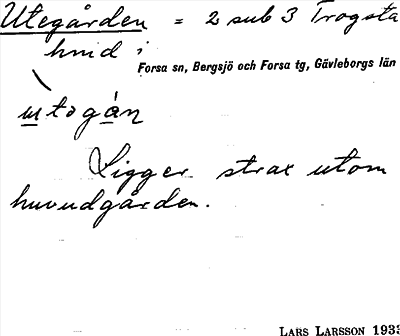 Utegården = 2 sub 3 Trogsta
hnid i
Forsa sn, Bergsjö och Forsa tg, Gävleborgs län
Ligger strax utom
huvudgården.
LARS LARSSON 1933